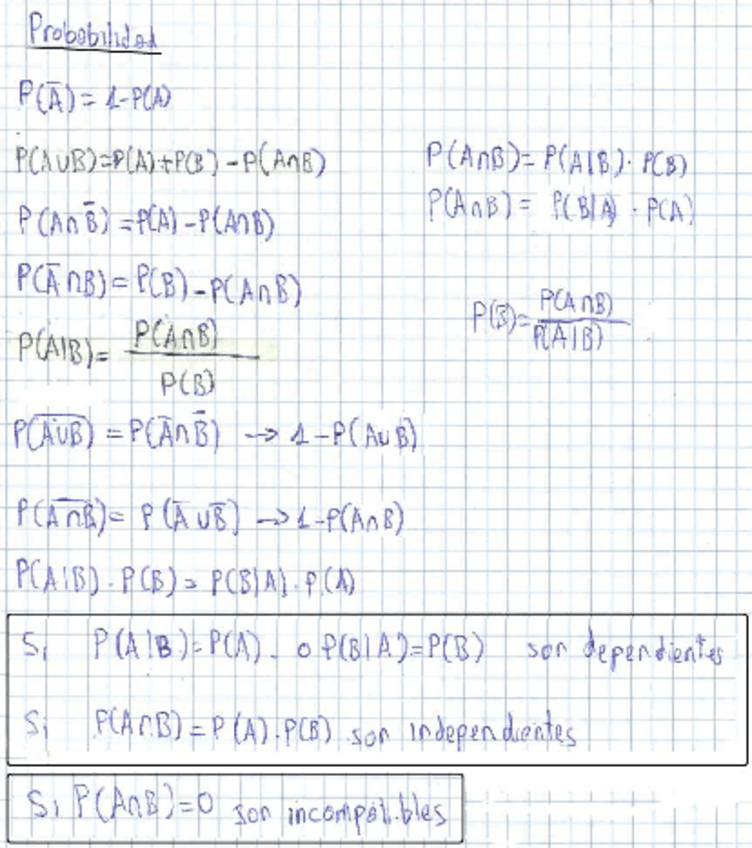 Probabilidad
P(Ā) = 1-P(A)
P(A∪B)=P(A)+P(B)-P(A∩B)
P(A∩B)= P(A|B)· P(B)
P(A∩B) = P(B|A) · P(A)
P(A∩B̄) =P(A)-P(A∩B)
P(Ā∩B)= P(B)-P(A∩B)
P(B)= P(A∩B) / P(A|B)
P(A|B)= P(A∩B) / P(B)
P(A̅∪̅B̅) = P(Ā∩B̄) → 1-P(A∪B)
P(A̅∩̅B̅)= P(Ā∪B̄) → 1-P(A∩B)
P(A|B) · P(B) = P(B|A) · P(A)
Si P(A|B)=P(A) o P(B|A)=P(B) son dependientes
Si P(A∩B)=P(A)·P(B) son independientes
Si P(A∩B)=0 son incompatibles